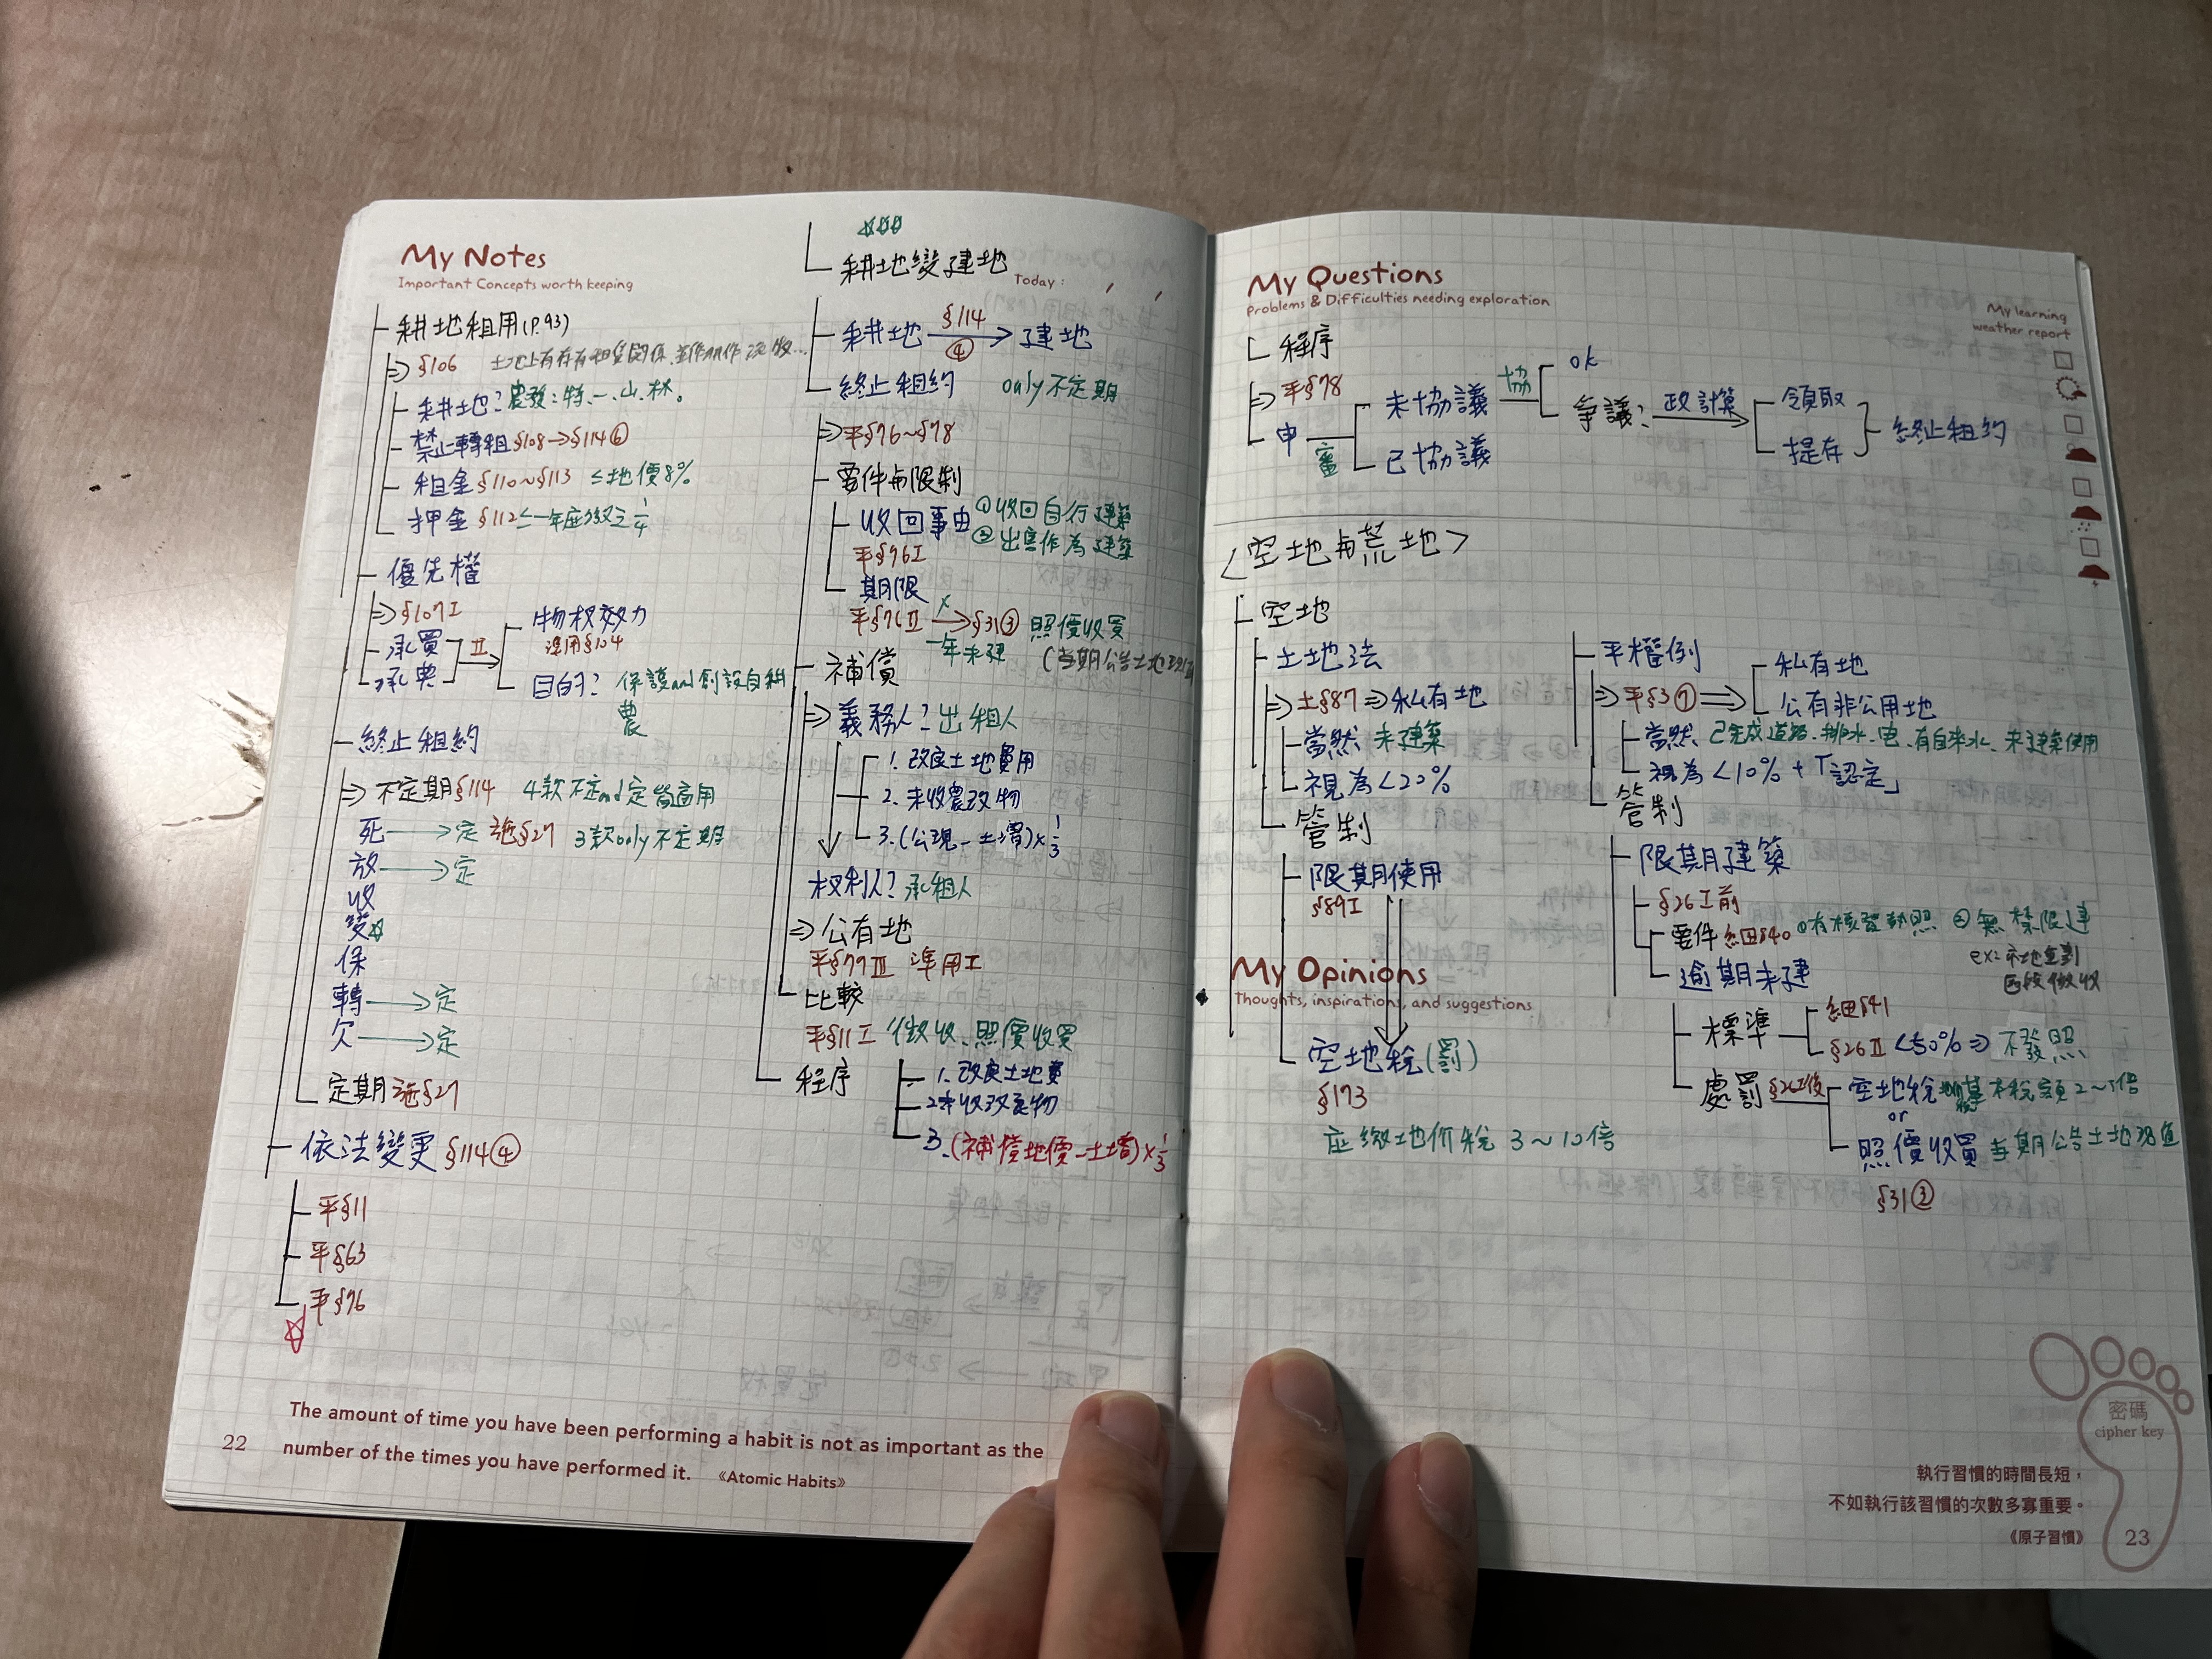 My Notes
Important Concepts worth keeping
耕地租用(P.93)
⇒ §106 土地上有存有租賃関係
耕地? 農發:特、一、山、林。
禁止轉租 §108→§114⑥
租金 §110~§113 ≤地價8%
押金 §112 ≤一年应缴之1/4
優先權
⇒§107Ⅰ
承買
承典
Ⅱ
物权效力
準用§104
目的? 保護and創設自耕
農
終止租約
⇒ 不定期§114 4款不定and定皆適用
死→定 施§27 3款only不定期
放→定
收
變☆
保
轉→定
欠→定
定期施§27
依法變更 §114④
平§11
平§63
平§76
☆
The amount of time you have been performing a habit is not as important as the
number of the times you have performed it. 《Atomic Habits》
22
☆☆☆
耕地變建地
Today :
耕地 §114④→ 建地
終止租約 only不定期
⇒平§76~§78
要件与限制
收回事由 ①收回自行建築
②出售作為建築
平§76Ⅰ
期限
平§76Ⅱ x→§31③ 照價收買
一年未建 (当期公告土地現值
補償
⇒義務人? 出租人
1.改良土地費用
2.未收農改物
3.(公現-土增)×1/3
权利人? 承租人
⇒公有地
平§77Ⅲ 準用Ⅰ
比較
平§11Ⅰ 徵收、照價收買
1.改良土地費
2未收改良物
3.(補償地價-土增)×1/3
程序
My Questions
Problems & Difficulties needing exploration
My learning
weather report
程序
⇒平§78
申 審
未協議 協 ok
爭議? 政計算→ 領取
提存
終止租約
已協議
<空地与荒地>
空地
土地法
⇒土§87⇒私有地
當然 未建築
視為<20%
管制
限期使用
§89Ⅰ
My Opinions
Thoughts, inspirations, and suggestions
空地稅(罰)
§173
应缴地价稅 3~10倍
平權例
⇒平§3⑦⇒ 私有地
公有非公用地
當然 已完成道路、排水、电、有自來水、未建築使用
視為<10%+「認定」
管制
限期建築
§26Ⅰ前
要件 細§40 ①有核發執照 ②無禁限建
ex:市地重劃
区段徵收
逾期未建
標準 細§41
§26Ⅱ <50%⇒不發照
處罰 §26Ⅰ後 空地稅 基本稅額2~5倍
or
照價收買 当期公告土地現值
§31③
密碼
cipher key
執行習慣的時間長短,
不如執行該習慣的次數多寡重要。
《原子習慣》
23